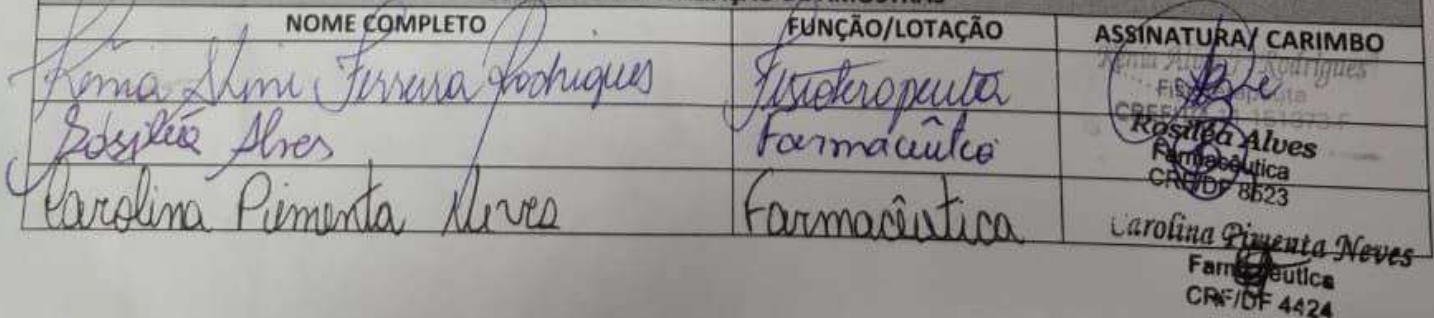 AMOSTRAS
NOME COMPLETO FUNÇÃO/LOTAÇÃO ASSINATURA/ CARIMBO
Ferreira Rodrigues Fisioterapeuta
Rodrigues
Rosiléa Alves Farmacêutica
Rosiléa Alves
Farmacêutica
CRF/DF 8523
Carolina Pimenta Neves Farmacêutica
Carolina Pimenta Neves
Farmacêutica
CRF/DF 4424